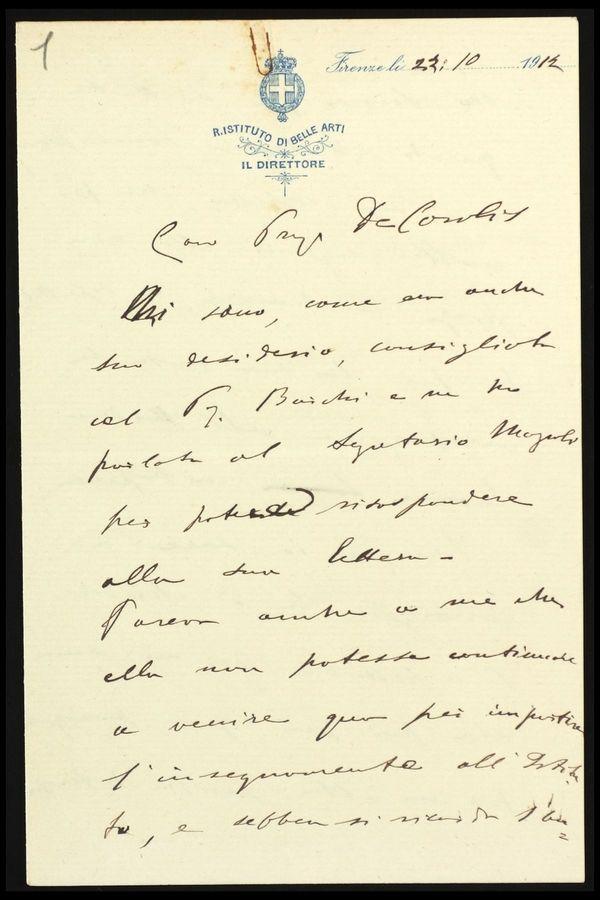 1
Firenze li 22; 10 1912
R. ISTITUTO DI BELLE ARTI
IL DIRETTORE
Caro Prof. De Carolis
Mi sono, come era anche
suo desiderio, consigliato
col P. e ne ho
parlato al Segretario
per potere rispondere
alla sua lettera -
Pareva anche a me che
ella non potesse continuare
a venire qua per impartire
l'insegnamento all'Istitu
to, e sebben si